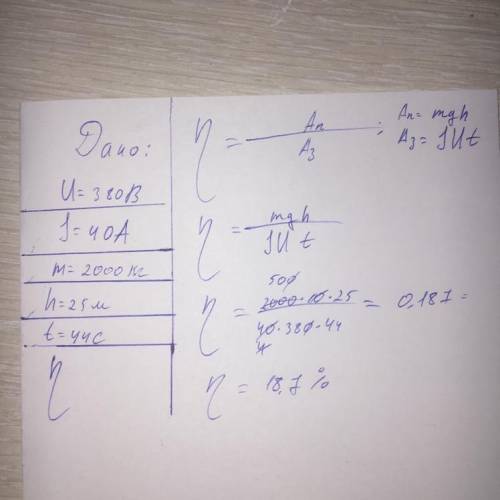 Дано:
U=380В
I=40А
m=2000кг
h=25м
t=44с
η
η = Aп / Aз ; Aп= mgh
Aз= IUt
η = mgh / IUt
η = 2000·10·25 / 40·380·44 = 0,187 =
500
4
η = 18,7 %